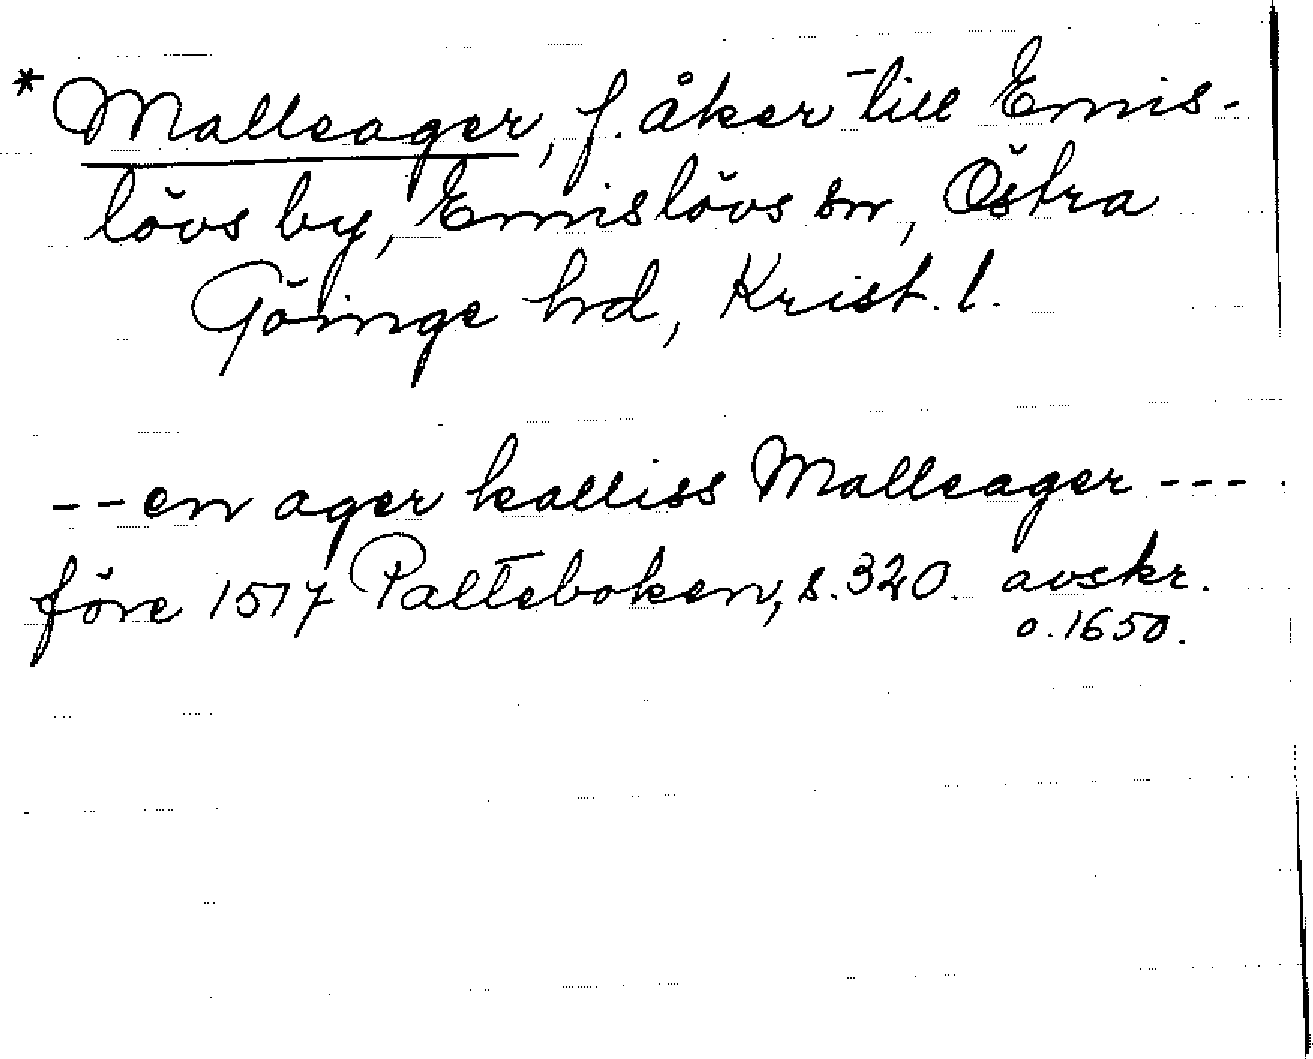 * Malleager, f. åker till Emis-
lövs by, Emislövs sn, Östra
Göinge hd, Krist. l.
-- en ager kalliss Malleager ---.
före 1517 Palteboken, s. 320. avskr.
o. 1650.